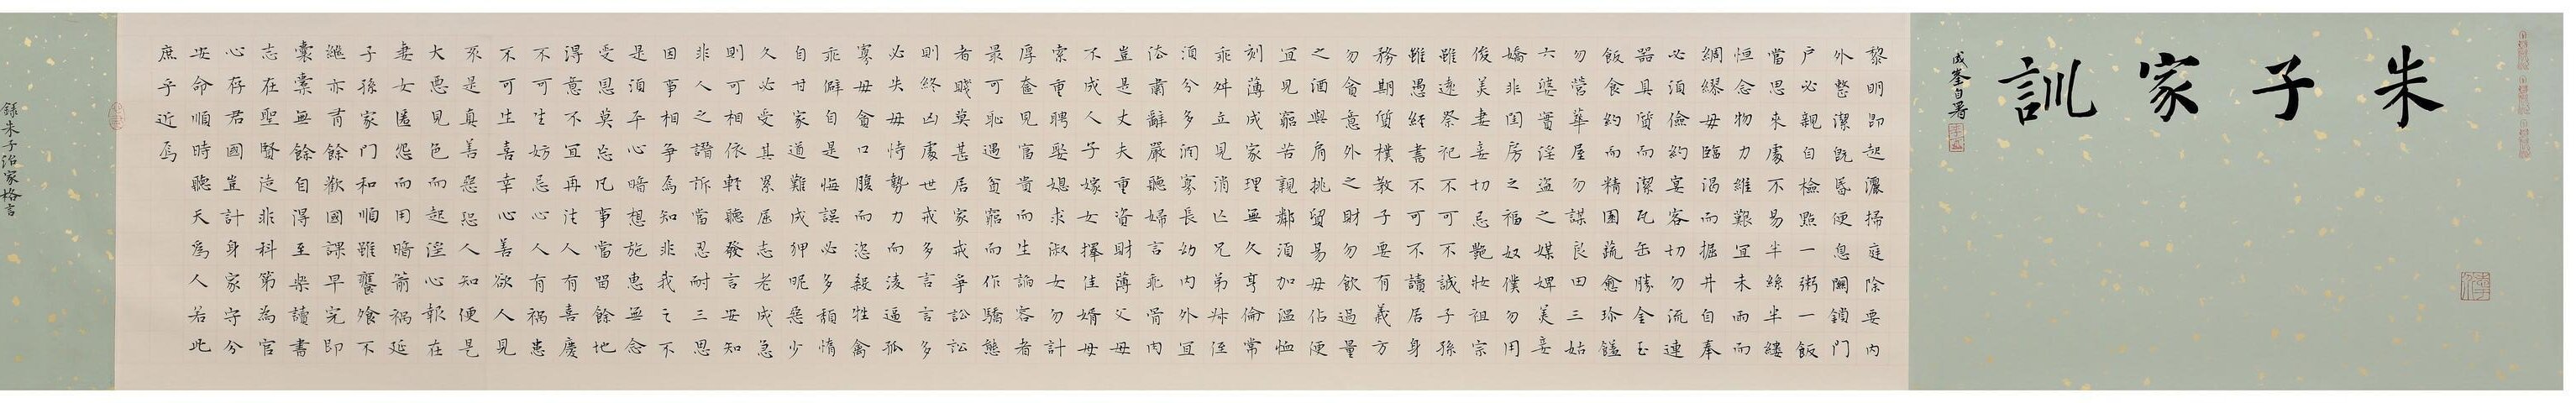 朱子家訓
成峯自署
黎明即起灑掃庭除要內
外整潔既昏便息關鎖門
戶必親自檢點一粥一飯
當思來處不易半絲半縷
恒念物力維艱宜未雨而
綢繆毋臨渴而掘井自奉
必須儉約宴客切勿流連
器具質而潔瓦缶勝金玉
飯食約而精園蔬愈珍饈
勿營華屋勿謀良田三姑
六婆實淫盜之媒婢美妾
嬌非閨房之福奴僕勿用
俊美妻妾切忌艷妝祖宗
雖遠祭祀不可不誠子孫
雖愚經書不可不讀居身
務期質樸教子要有義方
勿貪意外之財勿飲過量
之酒與肩挑貿易毋佔便
宜見窮苦親鄰須加溫恤
刻薄成家理無久享倫常
乖舛立見消亡兄弟叔侄
須分多潤寡長幼內外宜
法肅辭嚴聽婦言乖骨肉
豈是丈夫重資財薄父母
不成人子嫁女擇佳婿毋
索重聘娶媳求淑女勿計
厚奩見富貴而生諂容者
最可恥遇貧窮而作驕態
者賤莫甚居家戒爭訟訟
則終凶處世戒多言言多
必失毋恃勢力而凌逼孤
寡毋貪口腹而恣殺牲禽
乖僻自是悔誤必多頹惰
自甘家道難成狎昵惡少
久必受其累屈志老成急
則可相依輕聽發言安知
非人之譖訴當忍耐三思
因事相爭焉知非我之不
是須平心暗想施惠無念
受恩莫忘凡事當留餘地
得意不宜再往人有喜慶
不可生妒忌心人有禍患
不可生喜幸心善欲人見
不是真善惡恐人知便是
大惡見色而起淫心報在
妻女匿怨而用暗箭禍延
子孫家門和順雖饔飧不
繼亦有餘歡國課早完即
囊橐無餘自得至樂讀書
志在聖賢徒非科第為官
心存君國豈計身家守分
安命順時聽天為人若此
庶乎近焉
錄朱子治家格言